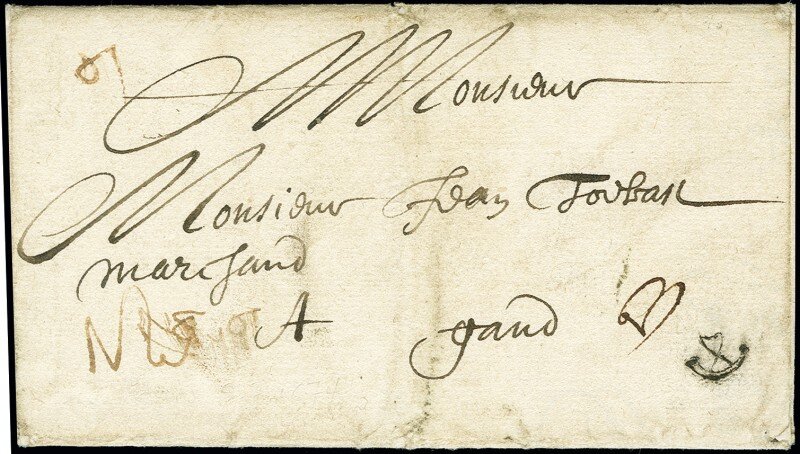 Monsieur
Monsieur Jean
marchand
A gand